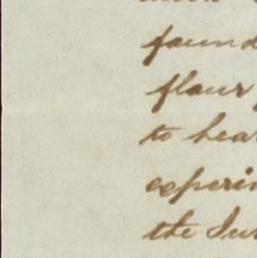 found
flour
to hear
experim
the Iu